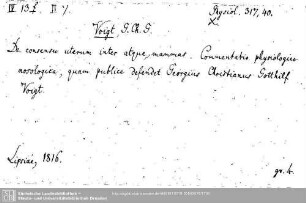 Physiol. 317, 40.
Voigt G. Ch. G.
De consensu uterum inter atque mammas. Commentatio physiologico
nosologica, quam publice defendet Georgius Christianus Gotthilf
Voigt.
Lipsiae, 1816.
gr. 4.
Sächsische Landesbibliothek -
Staats- und Universitätsbibliothek Dresden